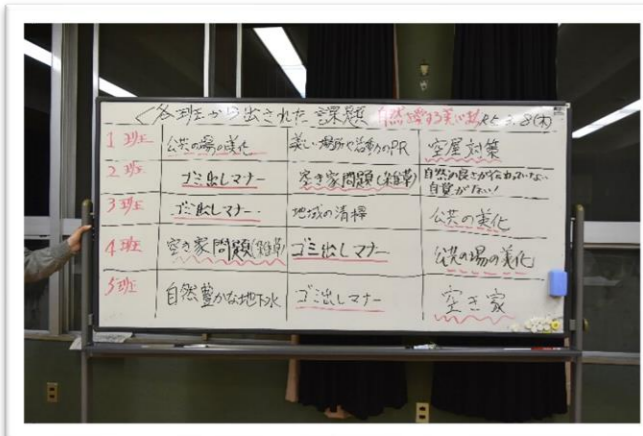 <各班から出された課題 自然を愛する美しい R5.6.8(木)
1班 公共の場の美化 美しい場所や活動のPR 空屋対策
2班 ゴミ出しマナー 空き家問題(雑草) 自然の良さが伝わっていない
自覚がない!
3班 ゴミ出しマナー. 地域の清掃 公共の美化
4班 空き家問題(雑草) ゴミ出しマナー 公共の場の美化
5班 自然豊かな地下水 ゴミ出しマナー 空き家